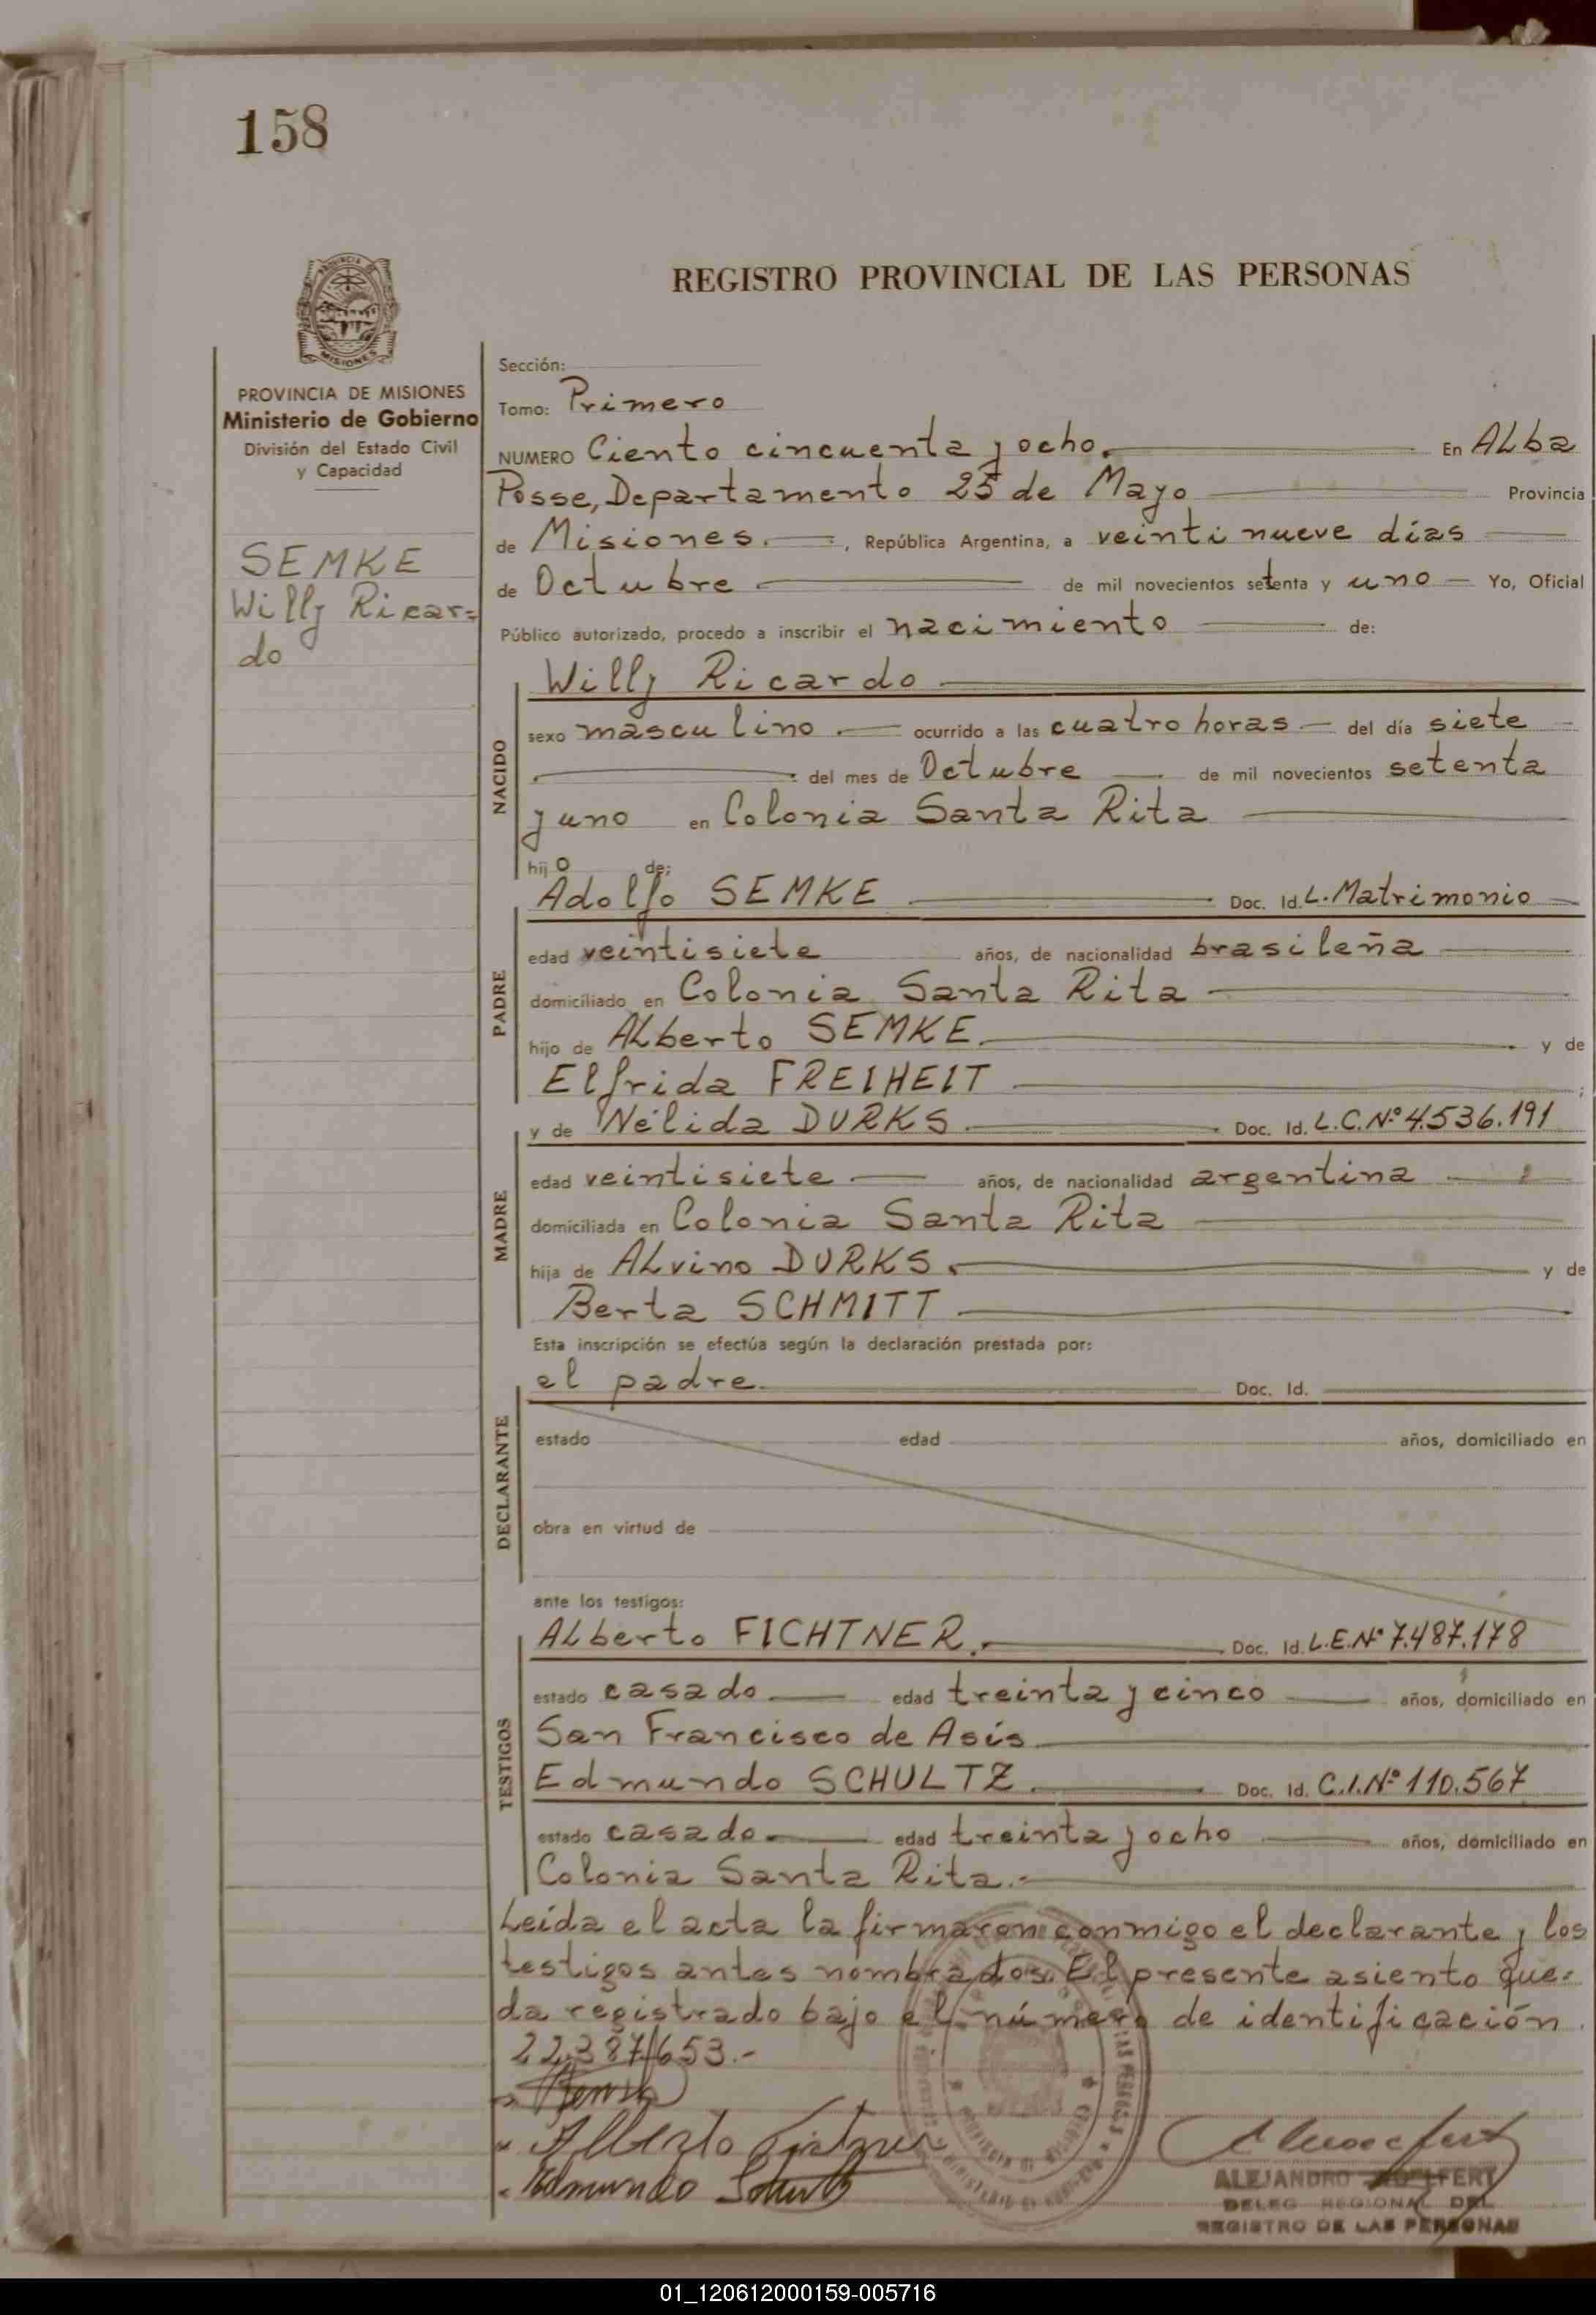 158
REGISTRO PROVINCIAL DE LAS PERSONAS
PROVINCIA DE MISIONES
Ministerio de Gobierno
División del Estado Civil
y Capacidad
SEMKE
Willy Ricar=
do
Sección:
Tomo: Primero
NUMERO Ciento cincuenta y ocho. En Alba
Posse, Departamento 25 de Mayo Provincia
de Misiones. , República Argentina, a veinti nueve días
de Octubre de mil novecientos setenta y uno Yo, Oficial
Público autorizado, procedo a inscribir el nacimiento de:
NACIDO
Willy Ricardo
sexo masculino. ocurrido a las cuatro horas del día siete
del mes de Octubre de mil novecientos setenta
y uno en Colonia Santa Rita
hijo de:
PADRE
Adolfo SEMKE Doc. Id. L. Matrimonio
edad veintisiete años, de nacionalidad brasileña
domiciliado en Colonia Santa Rita
hijo de Alberto SEMKE. y de
Elfrida FREIHEIT ;
MADRE
y de Nélida DURKS. Doc. Id. L.C.Nº 4.536.191
edad veintisiete años, de nacionalidad argentina
domiciliada en Colonia Santa Rita
hija de Alvino DURKS. y de
Berta SCHMITT
Esta inscripción se efectúa según la declaración prestada por:
DECLARANTE
el padre. Doc. Id.
estado edad años, domiciliado en
obra en virtud de
ante los testigos:
TESTIGOS
Alberto FICHTNER. Doc. Id. L.E.Nº 7.487.178
estado casado edad treinta y cinco años, domiciliado en
San Francisco de Asís
Edmundo SCHULTZ. Doc. Id. C.I.Nº 110.567
estado casado. edad treinta y ocho años, domiciliado en
Colonia Santa Rita.-
Leída el acta la firmaron conmigo el declarante y los
testigos antes nombrados. El presente asiento que=
da registrado bajo el número de identificación
22.387.653.-
Alberto
Edmundo
ALEJANDRO
DELEG REGIONAL DEL
REGISTRO DE LAS PERSONAS
01_120612000159-005716